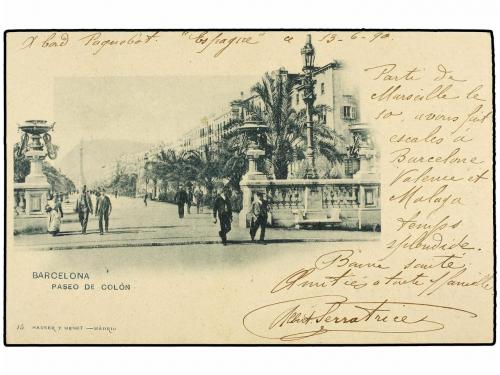 X bord Paquebot. "Espagne" a 13-6-90.
Parti de
Marseille le
10, avons fait
escales à
Barcelone
Valence et
Malaga
temps
splendide.
Bonne santé
Amitiés à toute famille
Serratrice
BARCELONA
PASEO DE COLÓN
HAUSER Y MENET —MADRID